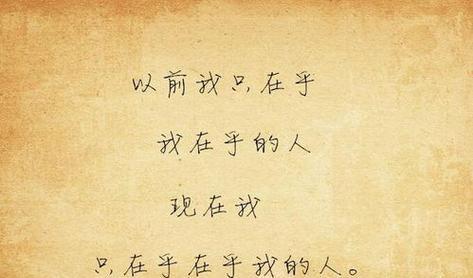 以前我只在乎
我在乎的人
现在我
只在乎在乎我的人。